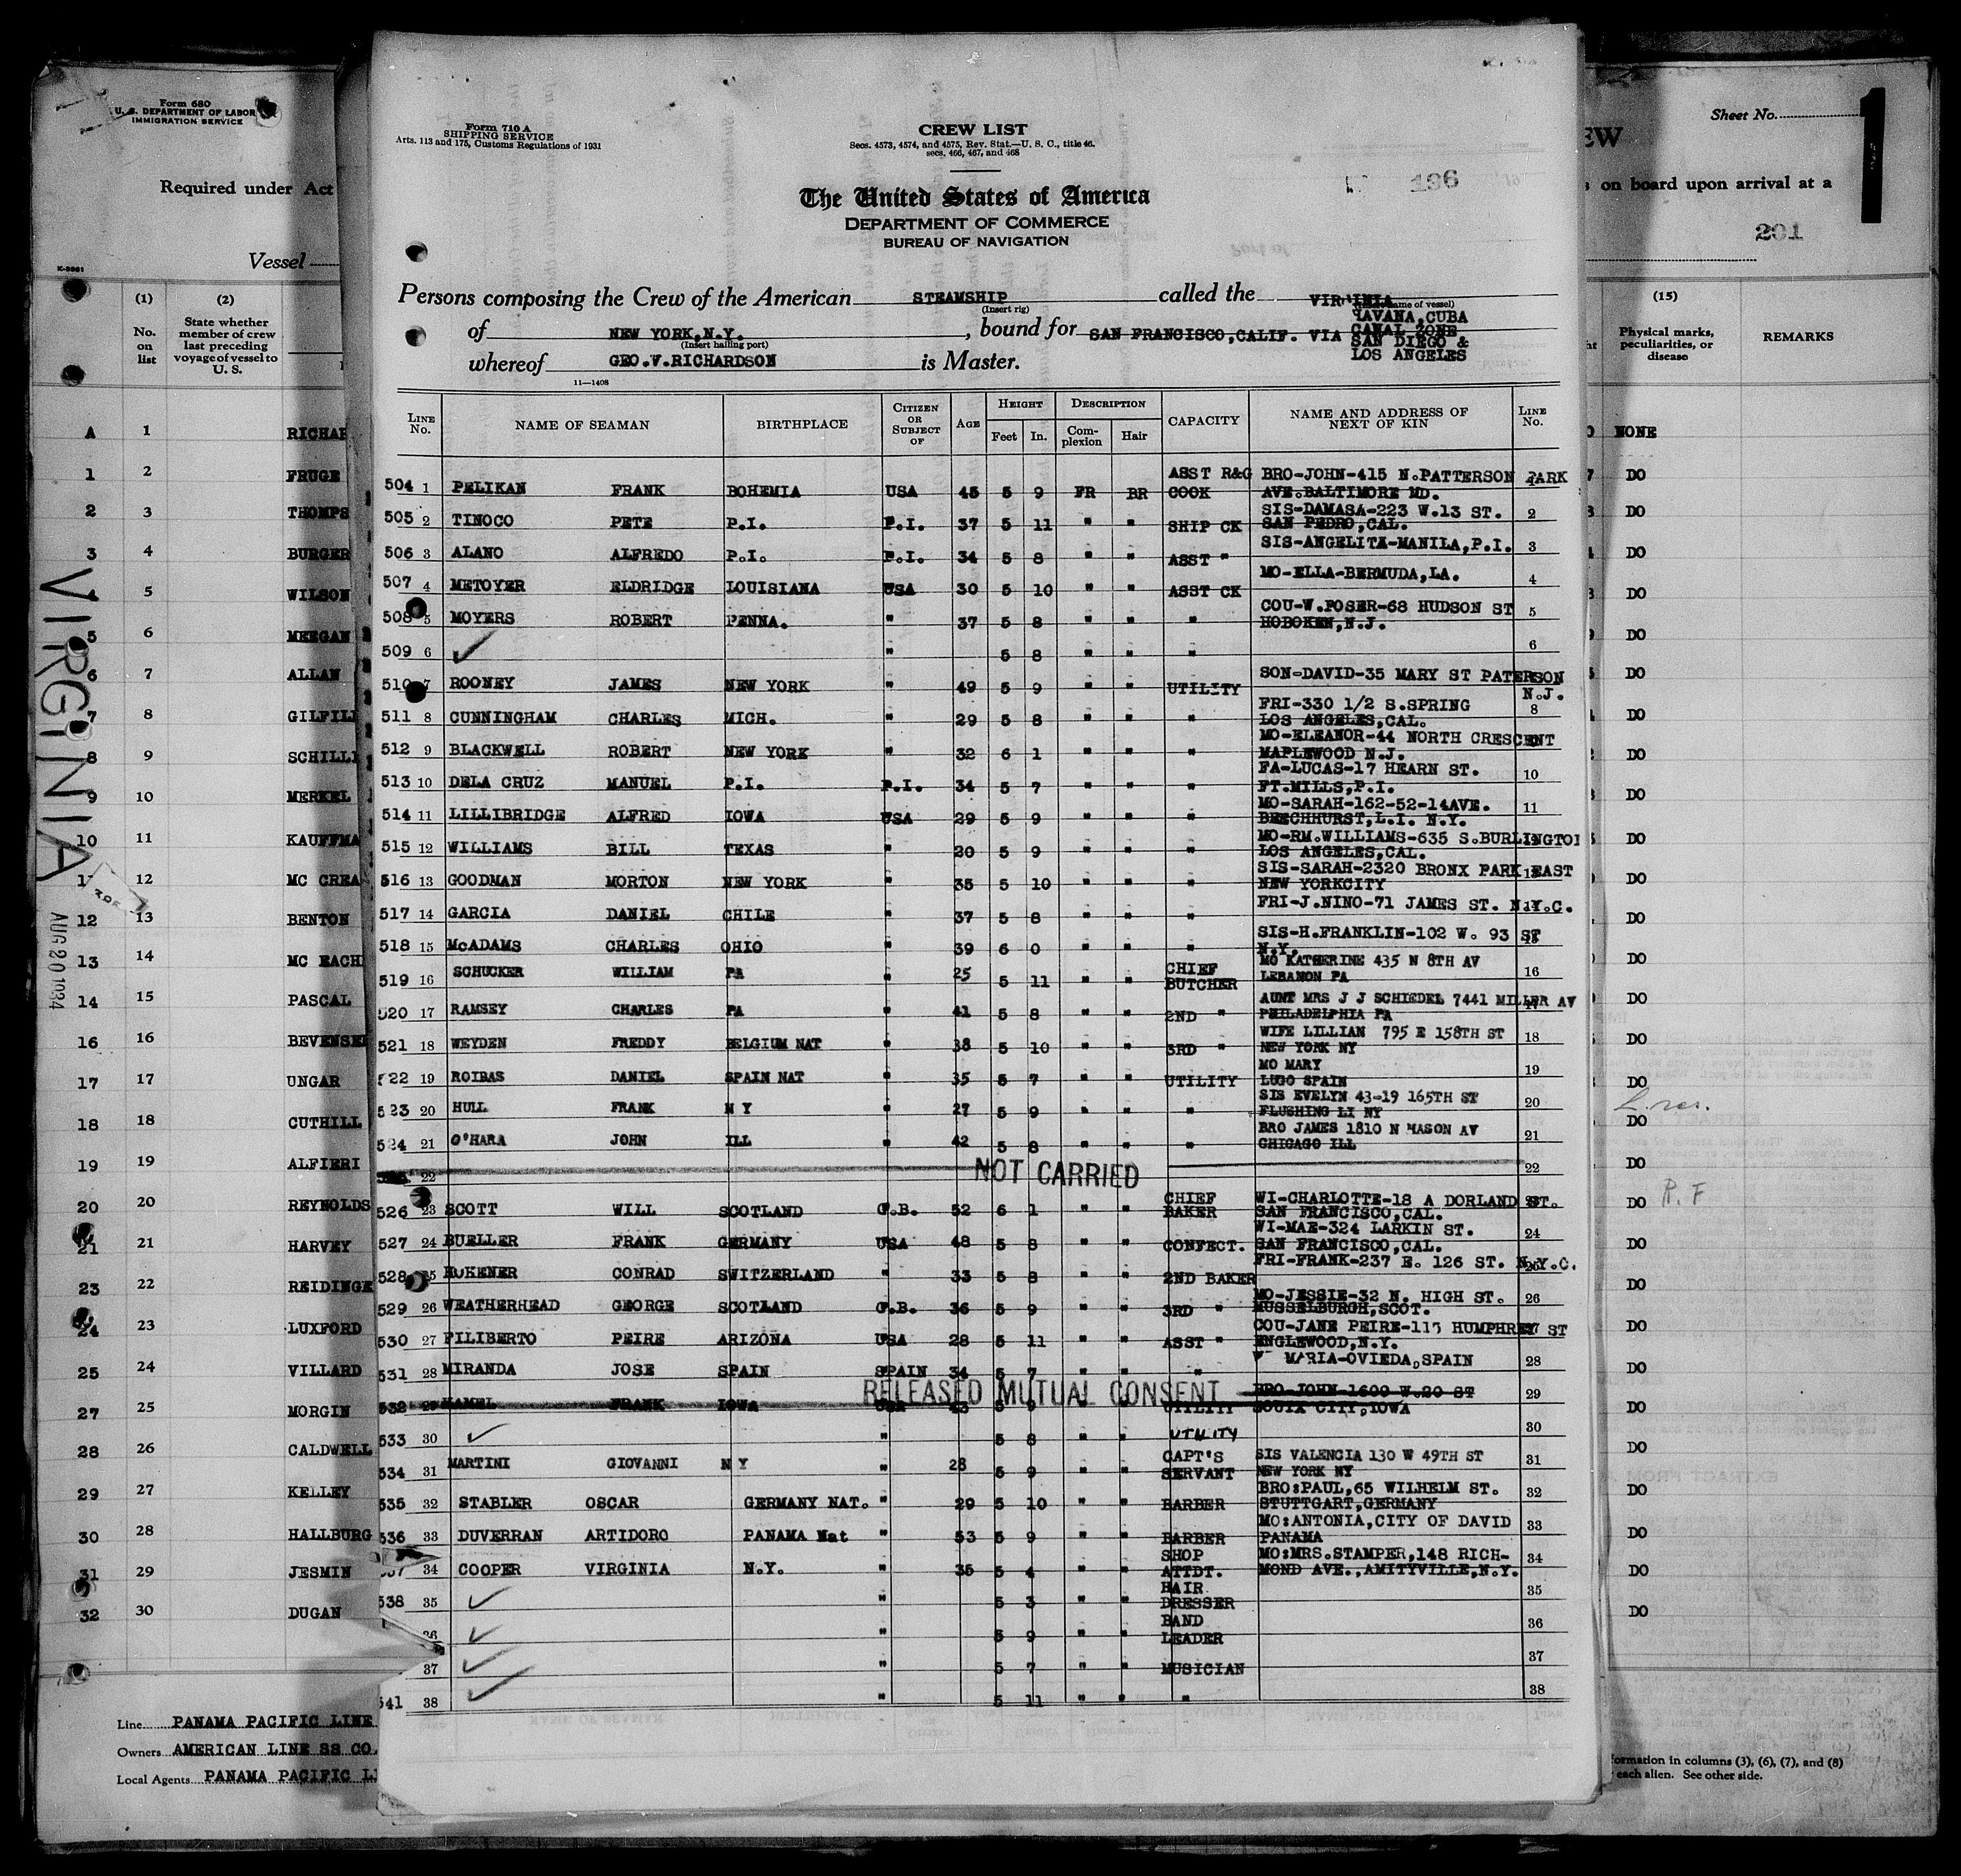 Form 680
U. S. DEPARTMENT OF LABOR
IMMIGRATION SERVICE
Required under Act
Vessel
(1) (2)
No. on list State whether member of crew last preceding voyage of vessel to U. S.
A 1 RICHAR
1 2 FRUGE
2 3 THOMPS
3 4 BURGER
4 5 WILSON
5 6 MEEGAN
6 7 ALLAN
7 8 GILFILL
8 9 SCHILLI
9 10 MERKEL
10 11 KAUFFMA
12 MC CREA
12 13 BENTON
13 14 MC EACH
14 15 PASCAL
16 16 BEVENSE
17 17 UNGAR
18 18 CUTHILL
19 19 ALFIERI
20 20 REYNOLDS
21 21 HARVEY
23 22 REIDINGE
24 23 LUXFORD
25 24 VILLARD
27 25 MORGIN
28 26 CALDWELL
29 27 KELLEY
30 28 HALLBURG
31 29 JESMIN
32 30 DUGAN
VIRGINIA
AUG 20 1934
Line PANAMA PACIFIC LINE
Owners AMERICAN LINE SS CO.
Local Agents PANAMA PACIFIC LI
Form 710 A
SHIPPING SERVICE
Arts. 113 and 175, Customs Regulations of 1931
CREW LIST
Secs. 4573, 4574, and 4575, Rev. Stat.—U. S. C., title 46.
secs. 466, 467, and 468
196
The United States of America
DEPARTMENT OF COMMERCE
BUREAU OF NAVIGATION
Persons composing the Crew of the American STEAMSHIP called the VIRGINIA
(Insert rig) (Insert name of vessel)
of NEW YORK,N.Y. , bound for SAN FRANCISCO,CALIF. VIA HAVANA,CUBA
CANAL ZONE
SAN DIEGO &
LOS ANGELES
(Insert hailing port)
whereof GEO.V.RICHARDSON is Master.
11—1408
LINE No. NAME OF SEAMAN BIRTHPLACE CITIZEN OR SUBJECT OF AGE HEIGHT Feet In. DESCRIPTION Complexion Hair CAPACITY NAME AND ADDRESS OF NEXT OF KIN LINE No.
504 1 PELIKAN FRANK BOHEMIA USA 45 5 9 FR BR ASST R&G COOK BRO-JOHN-415 N.PATTERSON PARK
AVE.BALTIMORE MD.
505 2 TINOCO PETE P.I. P.I. 37 5 11 " " SHIP CK SIS-DAMASA-223 W.13 ST. 2
SAN PEDRO,CAL.
506 3 ALANO ALFREDO P.I. P.I. 34 5 8 " " ASST " SIS-ANGELITA-MANILA,P.I. 3
507 4 METOYER ELDRIDGE LOUISIANA USA 30 5 10 " " ASST CK MO-ELLA-BERMUDA,LA. 4
508 5 MOYERS ROBERT PENNA. " 37 5 8 " " " COU-W.POSER-68 HUDSON ST 5
HOBOKEN,N.J.
509 6 " 5 8 " " " 6
510 7 ROONEY JAMES NEW YORK " 49 5 9 " " UTILITY SON-DAVID-35 MARY ST PATERSON
N.J.
511 8 CUNNINGHAM CHARLES MICH. " 29 5 8 " " " FRI-330 1/2 S.SPRING 8
LOS ANGELES,CAL.
512 9 BLACKWELL ROBERT NEW YORK " 32 6 1 " " " MO-ELEANOR-44 NORTH CRESCENT
MAPLEWOOD N.J.
513 10 DELA CRUZ MANUEL P.I. P.I. 34 5 7 " " " FA-LUCAS-17 HEARN ST. 10
FT.MILLS,P.I.
514 11 LILLIBRIDGE ALFRED IOWA USA 29 5 9 " " " MO-SARAH-162-52-14AVE. 11
BEECHHURST,L.I. N.Y.
515 12 WILLIAMS BILL TEXAS " 20 5 9 " " " MO-RM.WILLIAMS-635 S.BURLINGTON
LOS ANGELES,CAL.
516 13 GOODMAN MORTON NEW YORK " 35 5 10 " " " SIS-SARAH-2320 BRONX PARK EAST
NEW YORKCITY
517 14 GARCIA DANIEL CHILE " 37 5 8 " " " FRI-J.NINO-71 JAMES ST. N.Y.C.
518 15 McADAMS CHARLES OHIO " 39 6 0 " " " SIS-H.FRANKLIN-102 W. 93 ST
N.Y.
519 16 SCHUCKER WILLIAM PA " 25 5 11 " " CHIEF BUTCHER MO KATHERINE 435 N 8TH AV 16
LEBANON PA
520 17 RAMSEY CHARLES PA " 41 5 8 " " 2ND " AUNT MRS J J SCHIEDEL 7441 MILLER AV
PHILADELPHIA PA
521 18 WEYDEN FREDDY BELGIUM NAT " 38 5 10 " " 3RD " WIFE LILLIAN 795 E 158TH ST 18
NEW YORK NY
522 19 ROIBAS DANIEL SPAIN NAT " 35 5 7 " " UTILITY MO MARY 19
LUGO SPAIN
523 20 HULL FRANK N Y " 27 5 9 " " " SIS EVELYN 43-19 165TH ST 20
FLUSHING LI NY
524 21 O'HARA JOHN ILL " 42 5 8 " " " BRO JAMES 1810 N MASON AV 21
CHICAGO ILL
22 NOT CARRIED 22
526 23 SCOTT WILL SCOTLAND G.B. 52 6 1 " " CHIEF BAKER WI-CHARLOTTE-18 A DORLAND ST.
SAN FRANCISCO,CAL.
527 24 BUELLER FRANK GERMANY USA 48 5 8 " " CONFECT. WI-MAE-324 LARKIN ST. 24
SAN FRANCISCO,CAL.
528 25 HOKENER CONRAD SWITZERLAND " 33 5 8 " " 2ND BAKER FRI-FRANK-237 E. 126 ST. N.Y.C.
529 26 WEATHERHEAD GEORGE SCOTLAND G.B. 36 5 9 " " 3RD " MO-JESSIE-32 N. HIGH ST. 26
MUSSELBURGH,SCOT.
530 27 FILIBERTO PEIRE ARIZONA USA 28 5 11 " " ASST " COU-JANE PEIRE-115 HUMPHREY ST
ENGLEWOOD,N.Y.
531 28 MIRANDA JOSE SPAIN SPAIN 34 5 7 " " " MARIA-OVIEDA,SPAIN 28
RELEASED MUTUAL CONSENT
532 29 HAMEL FRANK IOWA USA 43 5 9 " " UTILITY BRO-JOHN-1600 W.20 ST 29
SOUIX CITY,IOWA
533 30 " 5 8 " " UTILITY 30
534 31 MARTINI GIOVANNI N Y " 28 5 9 " " CAPT'S SERVANT SIS VALENCIA 130 W 49TH ST 31
NEW YORK NY
535 32 STABLER OSCAR GERMANY NAT. " 29 5 10 " " BARBER BRO:PAUL,65 WILHELM ST. 32
STUTTGART,GERMANY
536 33 DUVERRAN ARTIDORO PANAMA Nat " 53 5 9 " " BARBER MO:ANTONIA,CITY OF DAVID 33
PANAMA
537 34 COOPER VIRGINIA N.Y. " 35 5 4 " " SHOP ATTDT. MO:MRS.STAMPER,148 RICH- 34
MOND AVE.,AMITYVILLE,N.Y.
538 35 " 5 3 " " HAIR DRESSER 35
36 " 5 9 " " BAND LEADER 36
37 " 5 7 " " MUSICIAN 37
541 38 " 5 11 " " " 38
EW
Sheet No.
1
s on board upon arrival at a
201
(15)
Physical marks, peculiarities, or disease REMARKS
NONE
DO
DO
DO
DO
DO
DO
DO
DO
DO
DO
DO
DO
DO
DO
DO
DO
DO
DO
DO
DO R.F
DO
DO
DO
DO
DO
DO
DO
DO
DO
DO
formation in columns (3), (6), (7), and (8)
each alien. See other side.